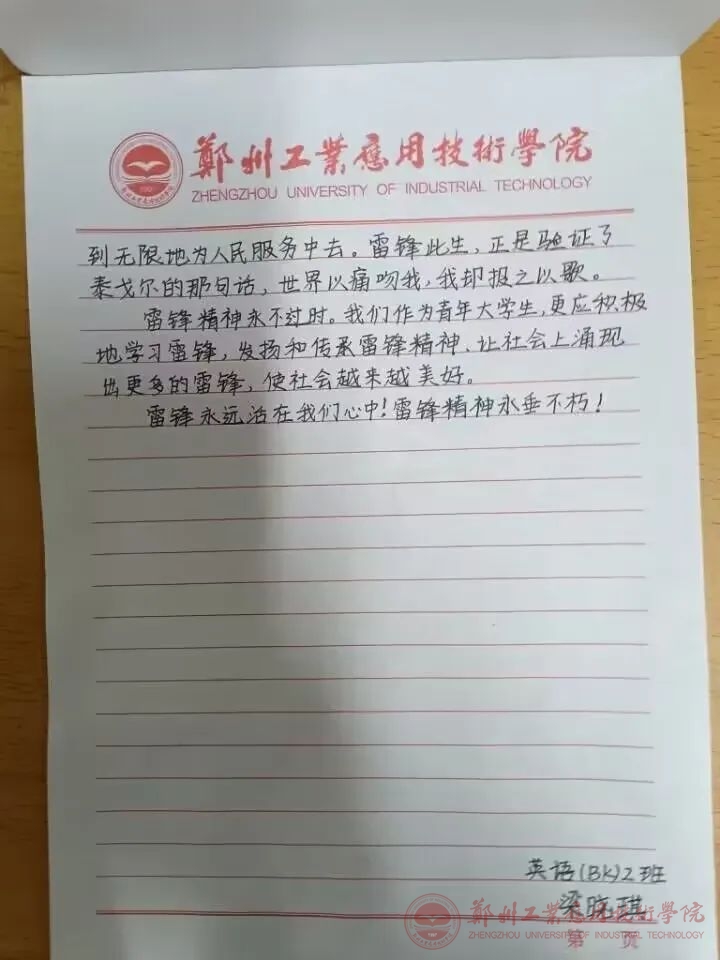 鄭州工業應用技術學院
ZHENGZHOU UNIVERSITY OF INDUSTRIAL TECHNOLOGY
到无限地为人民服务中去。雷锋此生，正是验证了
泰戈尔的那句话，世界以痛吻我，我却报之以歌。
雷锋精神永不过时。我们作为青年大学生，更应积极
地学习雷锋，发扬和传承雷锋精神、让社会上涌现
出更多的雷锋，使社会越来越美好。
雷锋永远活在我们心中！雷锋精神永垂不朽！
英语(BK)2班
梁 琪
第 页
鄭州工業應用技術學院
ZHENGZHOU UNIVERSITY OF INDUSTRIAL TECHNOLOGY